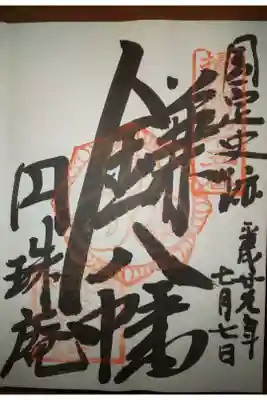 国定史跡
平成廿九年
七月七日
鎌八幡
円珠庵